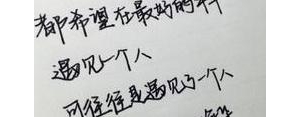 都希望在最好的年
遇见一个人
可往往是遇见了一个人